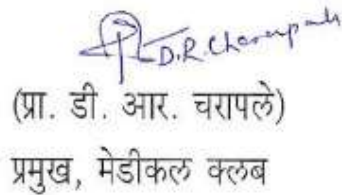 D.R. Charapale
(प्रा. डी. आर. चरापले)
प्रमुख, मेडीकल क्लब